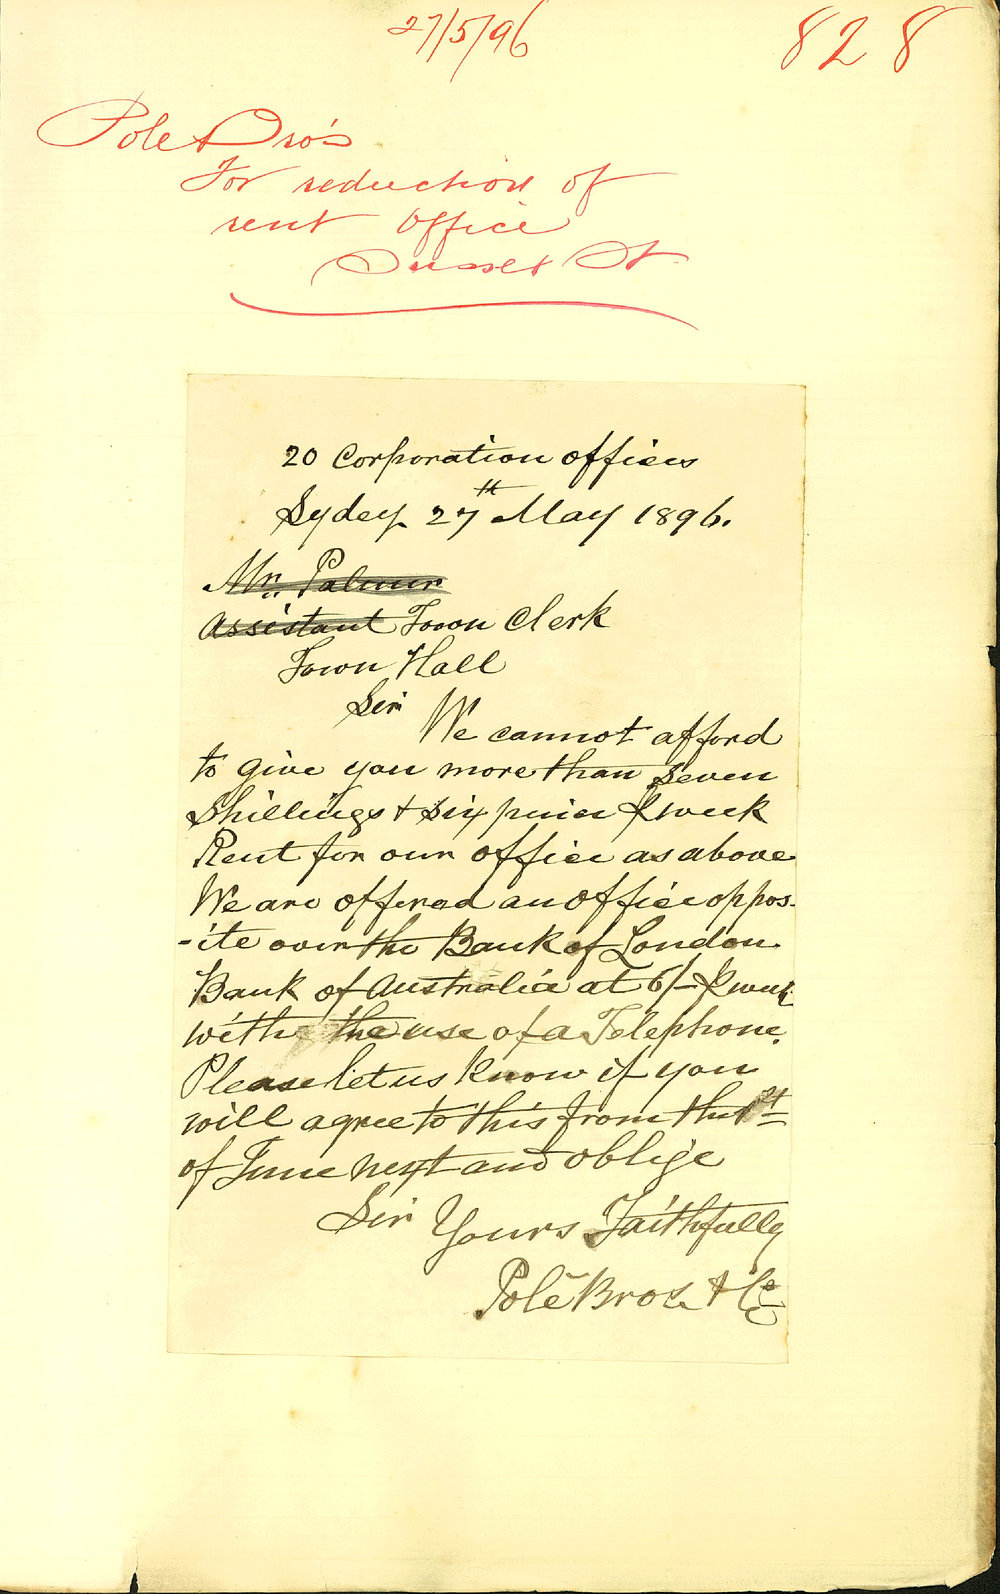 27/5/96
828
Pole Bro's
For reduction of
rent Office
Sussex St.
20 Corporation offices
Sydey 27th May 1896.
Mr. Palmer
Assistant Town Clerk
Town Hall
Sir
We cannot afford
to give you more than seven
Shillings & six pence ℔ week
Rent for our office as above
We are offered an office oppos-
-ite over the Bank of London
Bank of Australia at 6/- ℔ week
with the use of a Telephone.
Please let us know if you
will agree to this from the 1st
of June next and oblige
Sir Yours Faithfully
Pole Bros. & Co